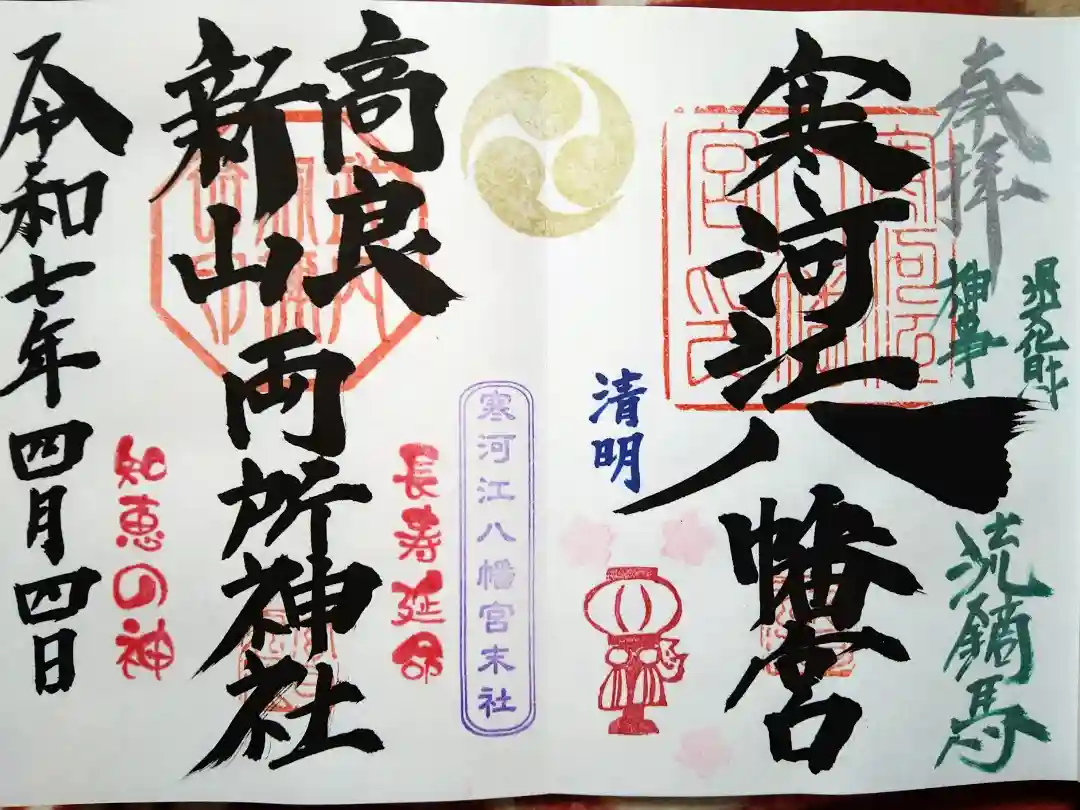 奉拝
神事
流鏑馬
寒河江八幡宮
清明
寒河江八幡宮末社
長寿延命
高良
新山
両所神社
知恵の神
令和七年四月四日